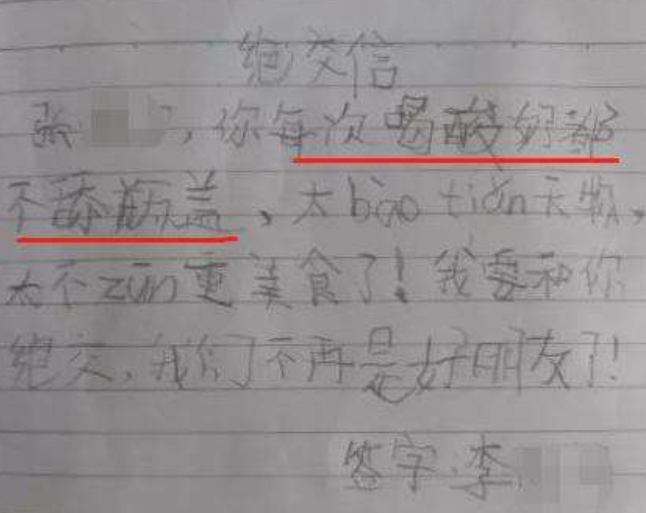 绝交信
张，你每次喝酸奶都
不舔瓶盖、太bao tiǎn天物，
太不zūn重美食了！我要和你
绝交，我们不再是好朋友了！
签字：李